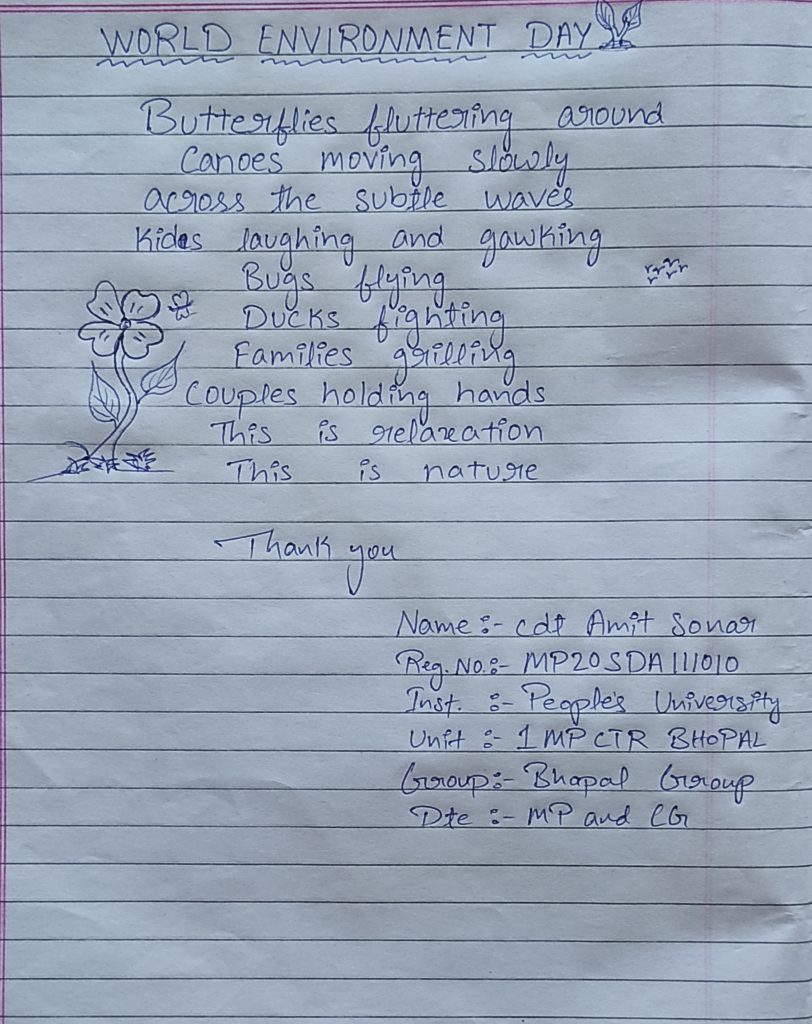 WORLD ENVIRONMENT DAY
Butterflies fluttering around
Canoes moving slowly
across the subtle waves
Kids laughing and gawking
Bugs flying
Ducks fighting
Families grilling
Couples holding hands
This is relaxation
This is nature
Thank you
Name :- cdt Amit Sonar
Reg. No. :- MP20SDA111010
Inst. :- People's University
Unit :- 1 MP CTR BHOPAL
Group :- Bhopal Group
Dte :- MP and CG